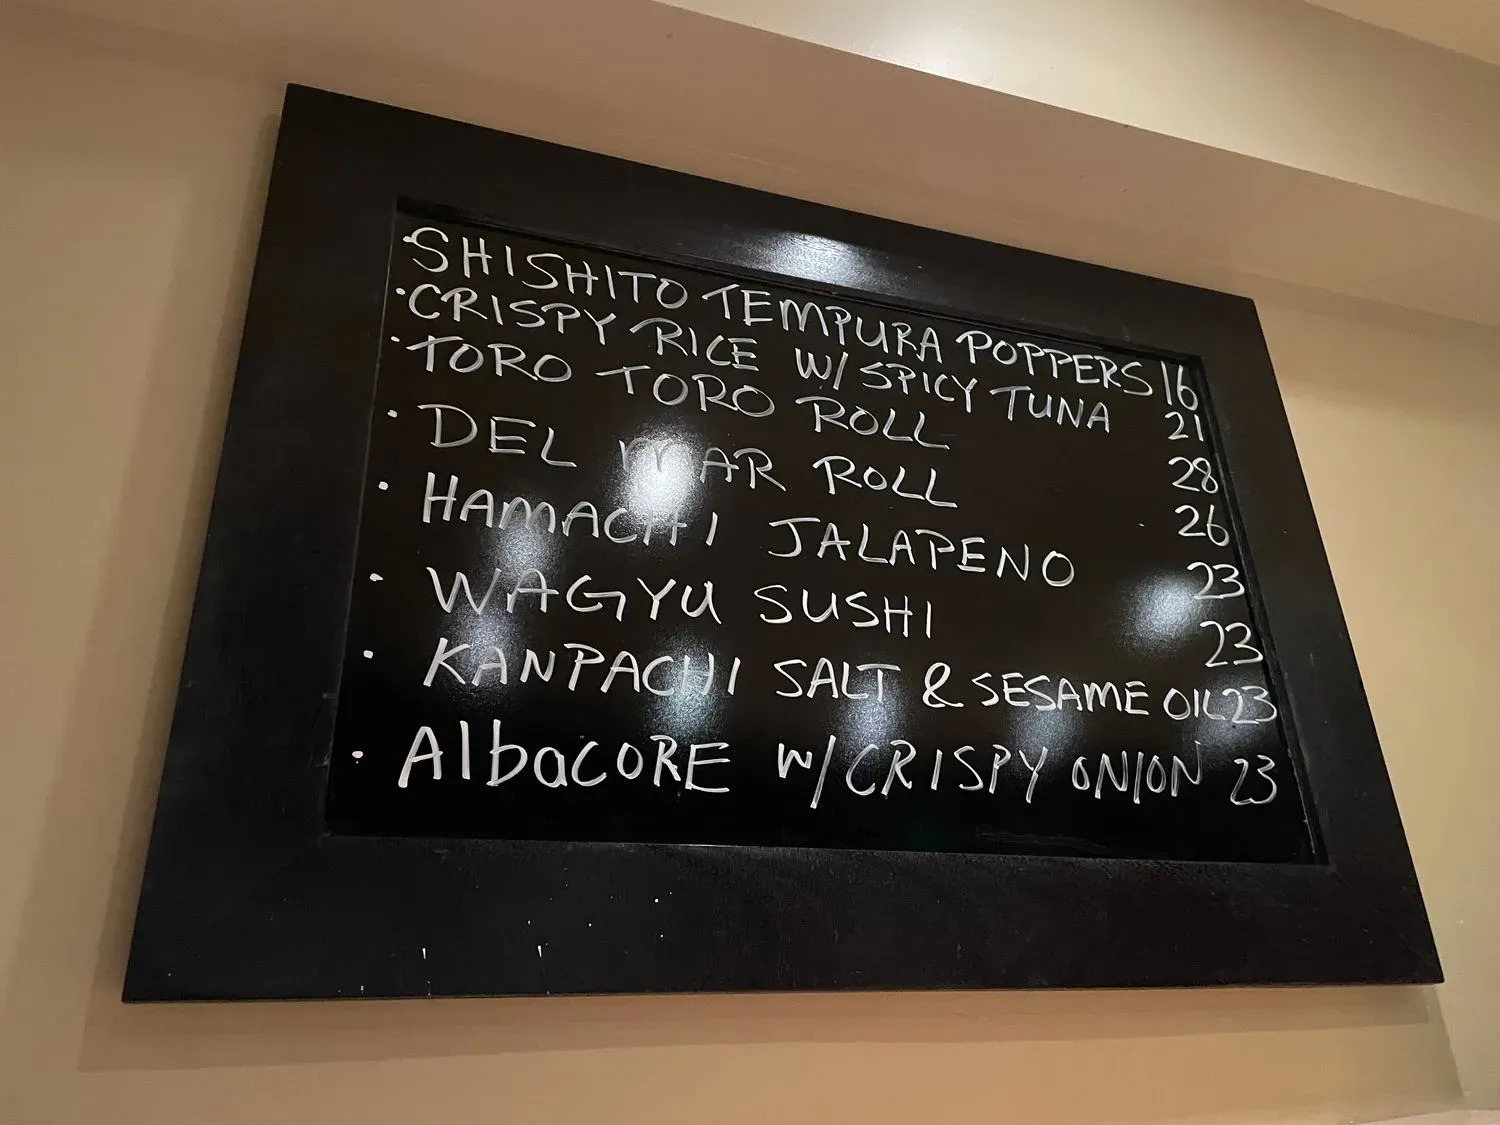 · SHISHITO TEMPURA POPPERS 16
· CRISPY RICE W/ SPICY TUNA 21
· TORO TORO ROLL 28
· DEL MAR ROLL 26
· HAMACHI JALAPENO 23
· WAGYU SUSHI 23
· KANPACHI SALT & SESAME OIL 23
· AlbaCORE W/ CRISPY ONION 23